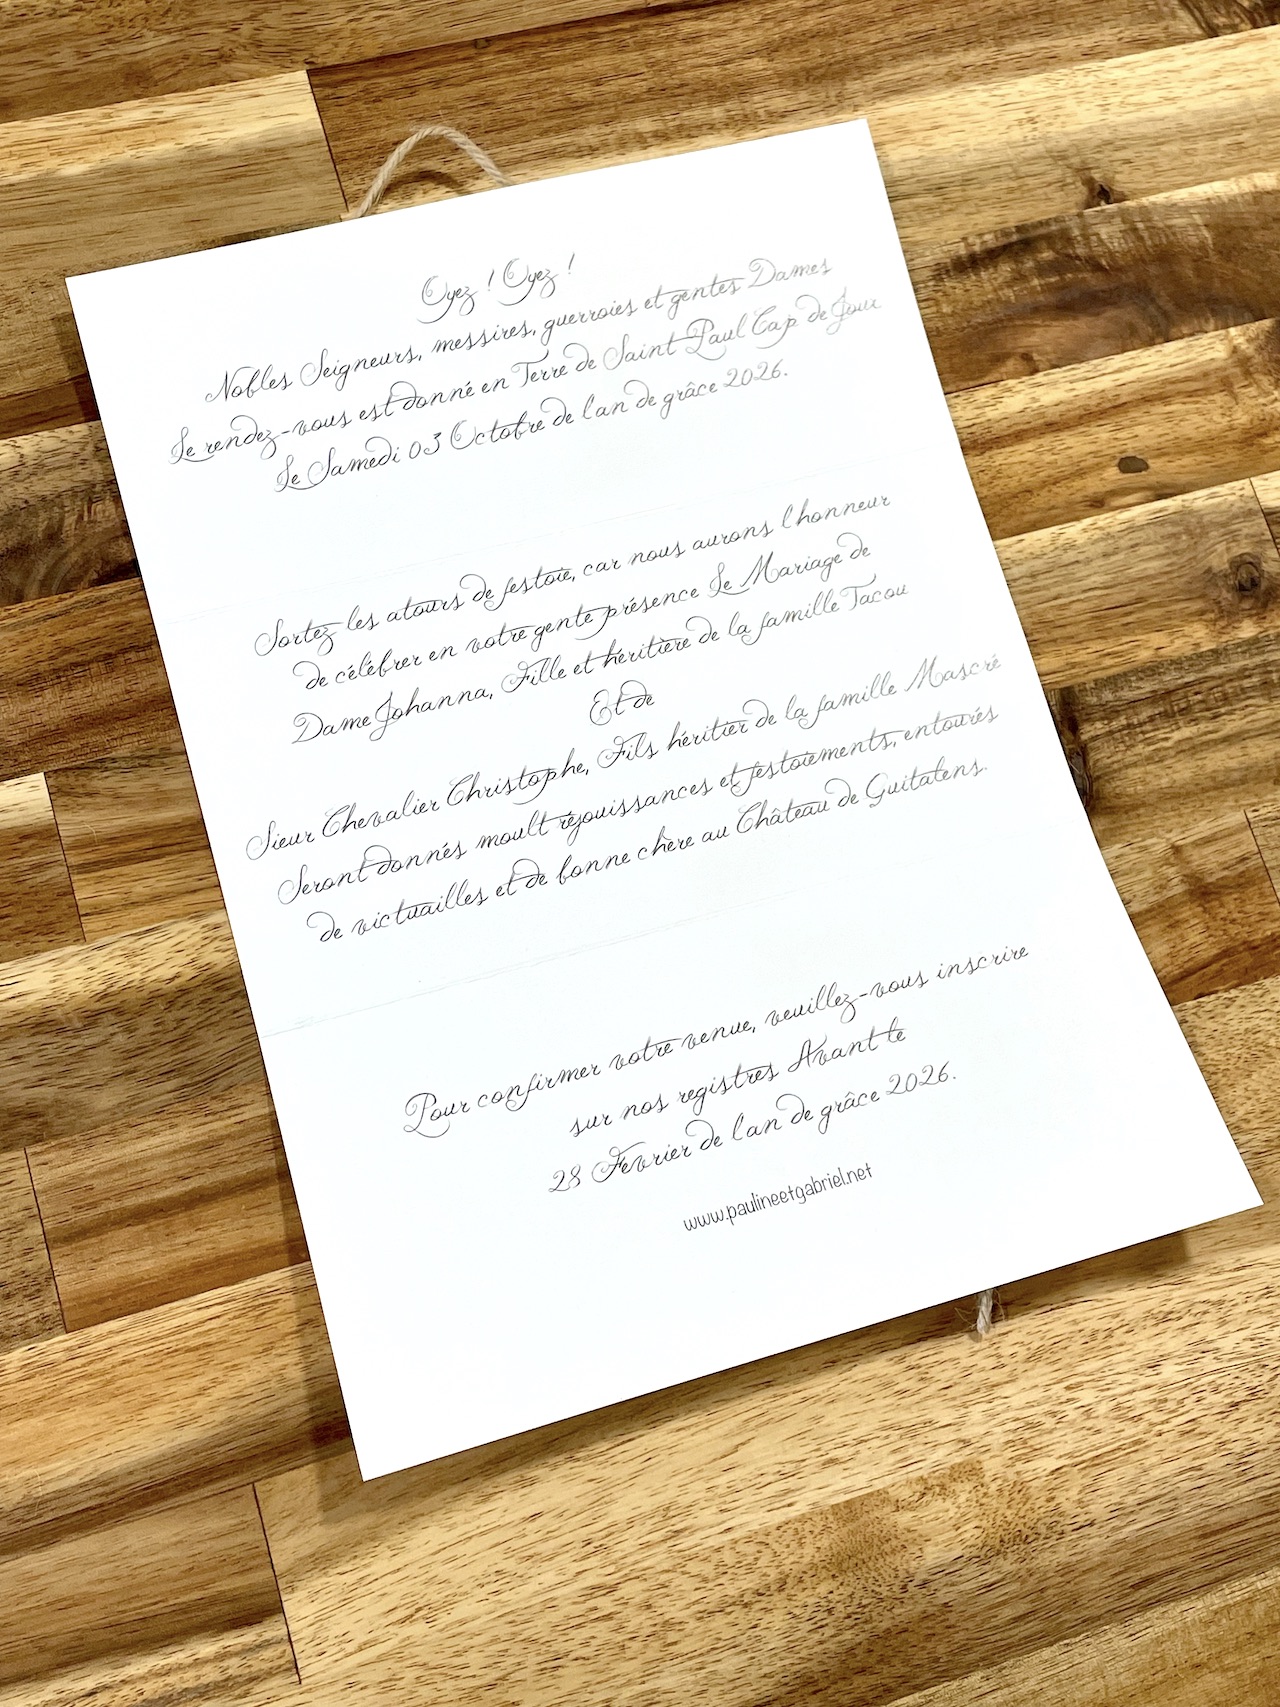 Oyez ! Oyez !
Nobles Seigneurs, messires, guerroies et gentes Dames
Le rendez-vous est donné en Terre de Saint Paul Cap de Joux
Le Samedi 03 Octobre de l'an de grâce 2026.
Sortez les atours de festoie, car nous aurons l'honneur
de célébrer en votre gente présence Le Mariage de
Dame Johanna, Fille et héritière de la famille Tacou
Et de
Sieur Chevalier Christophe, Fils héritier de la famille Mascré
Seront donnés moult réjouissances et festoiements, entourés
de victuailles et de bonne chère au Château de Guitalens.
Pour confirmer votre venue, veuillez-vous inscrire
sur nos registres Avant le
28 Fevrier de l'an de grâce 2026.
www.paulineetgabriel.net